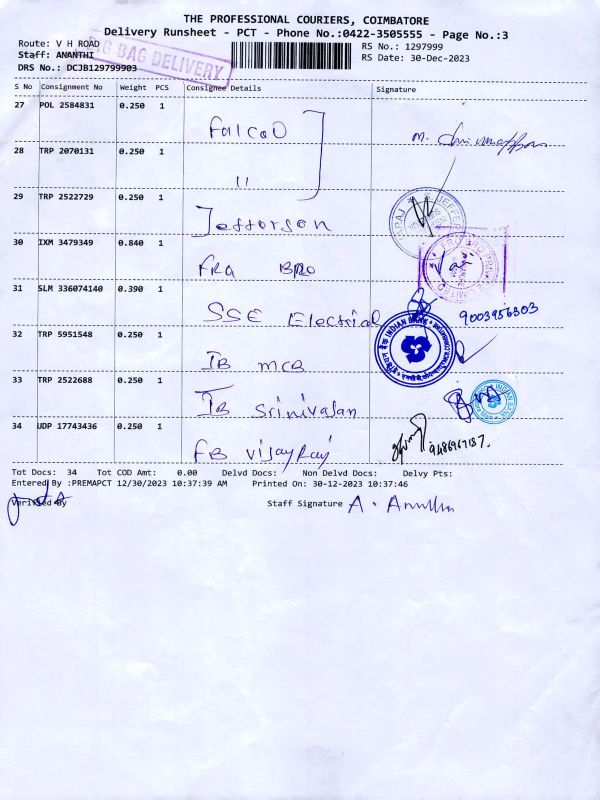 THE PROFESSIONAL COURIERS, COIMBATORE
Delivery Runsheet - PCT - Phone No.:0422-3505555 - Page No.:3
Route: V H ROAD
RS No.: 1297999
Staff: ANANTHI
RS Date: 30-Dec-2023
BAG DELIVERY
DRS No.: DCJB129799903
S No Consignment No Weight PCS Consignee Details Signature
27 POL 2584831 0.250 1 Falcao
28 TRP 2070131 0.250 1 "
29 TRP 2522729 0.250 1 Jefferson
30 IXM 3479349 0.840 1 FRA BRO
31 SLM 336074140 0.390 1 SSE Electrial 9003956803
32 TRP 5951548 0.250 1 IB MCB
INDIAN BANK
33 TRP 2522688 0.250 1 IB Srinivasan
34 UDP 17743436 0.250 1 FB VijayRaj
Tot Docs: 34 Tot COD Amt: 0.00 Delvd Docs: Non Delvd Docs: Delvy Pts:
Entered By :PREMAPCT 12/30/2023 10:37:39 AM Printed On: 30-12-2023 10:37:46
Verified By Staff Signature